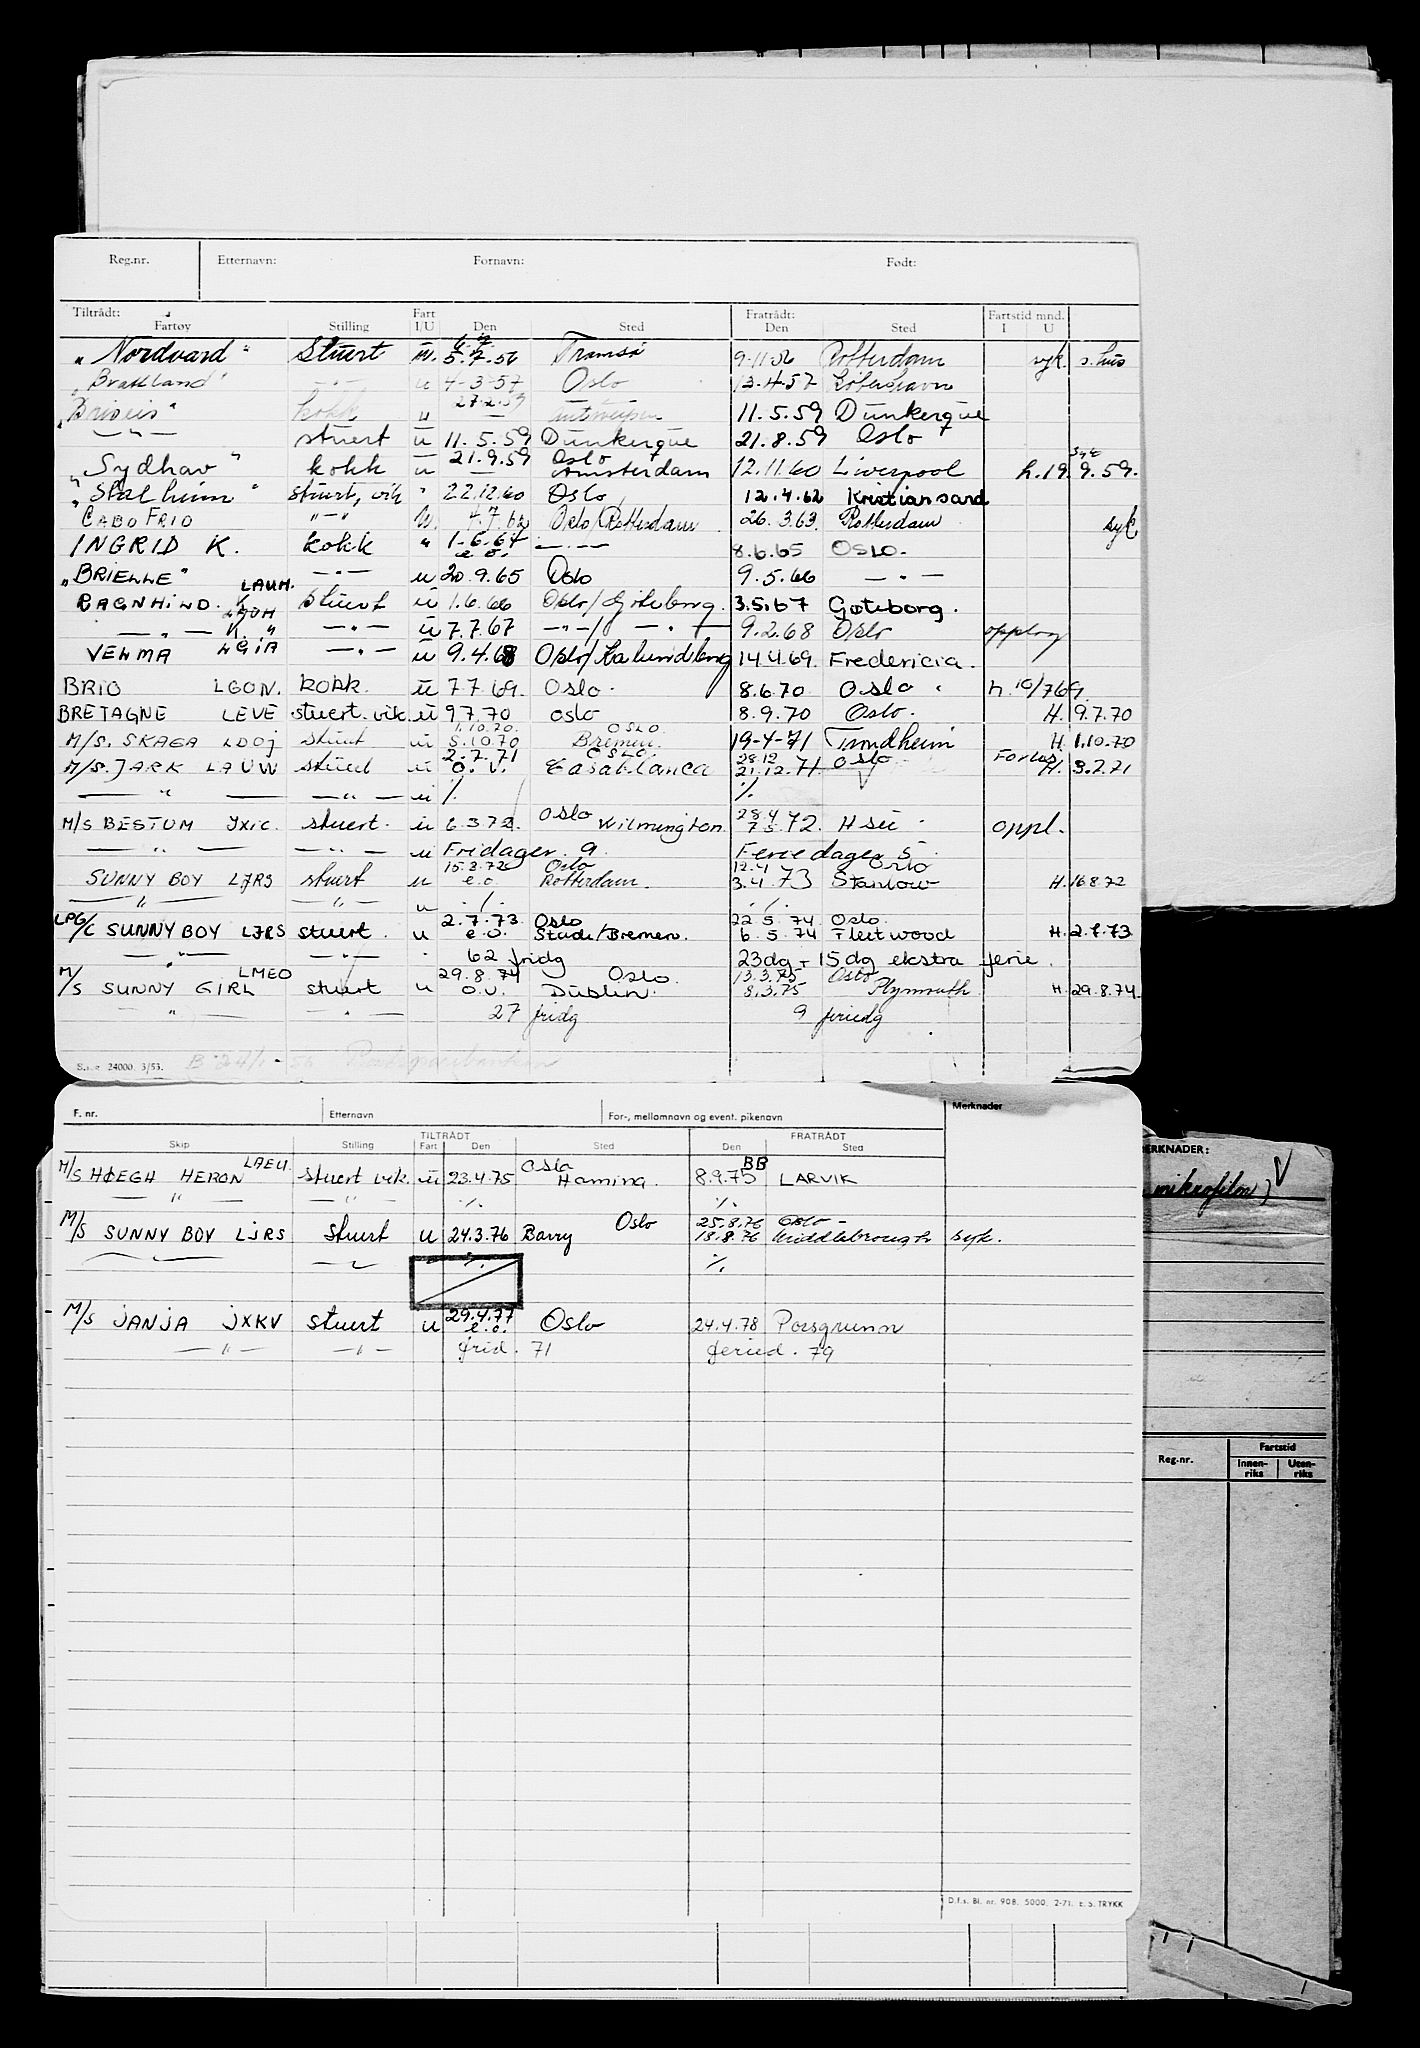 Reg.nr. Etternavn: Fornavn: Født:
Tiltrådt: Fartøy Stilling Fart I/U Den Sted Fratrådt: Den Sted Fartstid mnd. I U
"Nordvard" Stuert u. 5.7.56 Tromsø 9-11-56 Rotterdam syk. s.hus
"Brattland" -"- u 4-3-57 Oslo 13.4.57 København
27.2.59
"Briseis" kokk u — Antwerpen 11.5.59 Dunkerque
—"— stuert u 11.5.59 Dunkerque 21.8.59 Oslo
21.9.59 Oslo
"Sydhav" kokk u — Amsterdam 12.11.60 Liverpool h. 19.9.59.
"Stalheim" stuert, vik " 22.12.60 Oslo 12.4.62 Kristiansand
CABO FRIO "-" u. 4.7.62 Oslo/Rotterdam 26.3.63. Rotterdam syk
INGRID K. kokk " 1.6.64 e.o. —"— 8.6.65 OSLO.
"BRIELLE" —"— u 20.9.65 Oslo 9.5.66 —"—
RAGNHILD K. LAUH. Stuert u 1.6.66 Oslo/Göteborg. 3.5.67 Gøteborg.
—"— K." —"— u 7.7.67 —"—/—"— 9.2.68 Oslo opplag
VELMA LGIA —"— u 9.4.68 Oslo/Kalundborg 14.4.69. Fredericia.
BRIO LGON. kokk. u 7.7.69. Oslo. 8.6.70 Oslo. h. 10/7 69.
BRETAGNE LEVE stuert. vik. u 9.7.70 oslo 8.9.70 Oslo. H. 9.7.70
1.10.70. OSLO
M/S. SKAGA LDOJ stuert u 5.10.70 Bremen. 19-4-71 Trondheim H. 1.10.70
2.7.71 OSLO. 28.12 Oslo
M/S. JARK LAUW stuert u o.u. Casablanca 21.12.71. H. 3.7.71
—"— —"— u ./. ./.
Oslo 28.4
M/S BESTUM JXIC. stuert. u 6.3.72. Wilmington. 7.5.72. Hseu. oppl.
—"— —"— u Fridager. 9. Feriedager 5.
15.8.72 Oslo 12.4 Oslo
SUNNY BOY LJRS stuert u e.o Rotterdam. 3.4.73 Stanlow H. 16.8.72
—"— —"— u ./. ./.
2.7.73 Oslo 22.5.74 Oslo.
LPG/C SUNNY BOY LJRS stuert. u e.o. Stade/Bremen. 6.5.74 Fleetwood H. 2.7.73
—"— —"— 62 fridg 23dg + 15dg ekstra ferie.
29.8.74 Oslo. 13.3.75 Oslo
M/S SUNNY GIRL LMEO stuert u o.u. Dublin. 8.3.75 Plymouth H. 29.8.74.
—"— —"— 27 fridg 9 feriedg
24000. 3/53.
F. nr. Etternavn For-, mellomnavn og event. pikenavn Merknader
Skip Stilling TILTRÅDT Fart Den Sted FRATRÅDT Den Sted
Oslo BB
M/S HØEGH HERON LAEU. stuert vik. u 23.4.75 Hamina. 8.9.75 LARVIK
—"— —"— ./. ./.
Oslo 25.8.76 Oslo –
M/S SUNNY BOY LJRS Stuert u 24.3.76 Barry 18.8.76 Middlebrough syk.
—"— —"— ./. ./.
M/S JANJA JXKV stuert u 29.4.77 e.o. Oslo 24.4.78 Porsgrunn
—"— —"— frid. 71 feried. 79
D.f.s. Bl. nr. 908. 5000. 2-71. E.S. TRYKK
MERKNADER:
mikrofilm)
Reg.nr. Fartstid Innen-riks Uten-riks